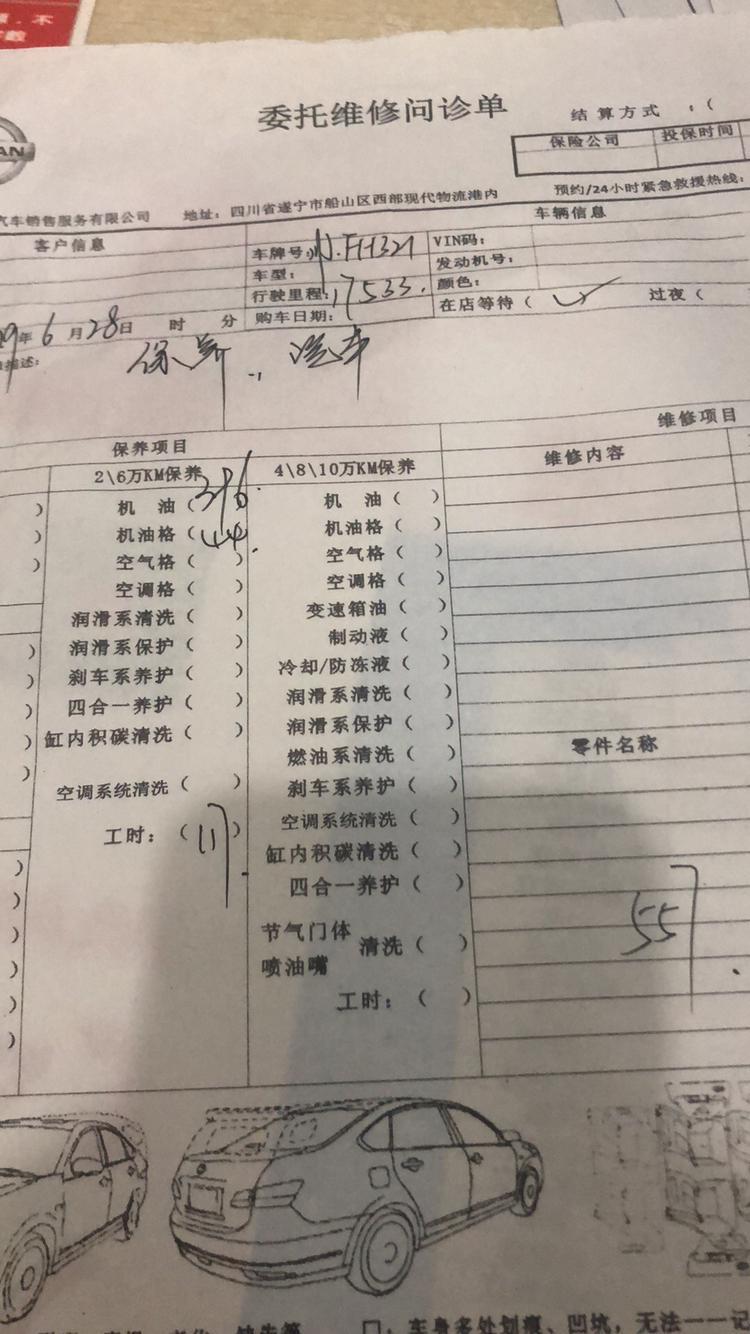 委托维修问诊单
结算方式 ：（
保险公司 投保时间
汽车销售服务有限公司 地址：四川省遂宁市船山区西部现代物流港内 预约/24小时紧急救援热线：
客户信息 车辆信息
车牌号： VIN码：
车型： 发动机号：
行驶里程：17533. 颜色：
年6月28日 时 分 购车日期： 在店等待（✓ 过夜（
描述：
保养项目 维修项目
2\6万KM保养 4\8\10万KM保养 维修内容
机 油（396 机 油（ ）
机油格（44 机油格（ ）
空气格（ ） 空气格（ ）
空调格（ ） 空调格（ ）
润滑系清洗（ ） 变速箱油（ ）
润滑系保护（ ） 制动液（ ）
刹车系养护（ ） 冷却/防冻液（ ）
四合一养护（ ） 润滑系清洗（ ）
缸内积碳清洗（ ） 润滑系保护（ ）
零件名称
燃油系清洗（ ）
空调系统清洗（ ） 刹车系养护（ ）
工时：（117） 空调系统清洗（ ）
缸内积碳清洗（ ）
四合一养护（ ）
557
节气门体
喷油嘴 清洗（ ）
工时：（ ）
口：车身多处划痕、凹坑，无法一一记